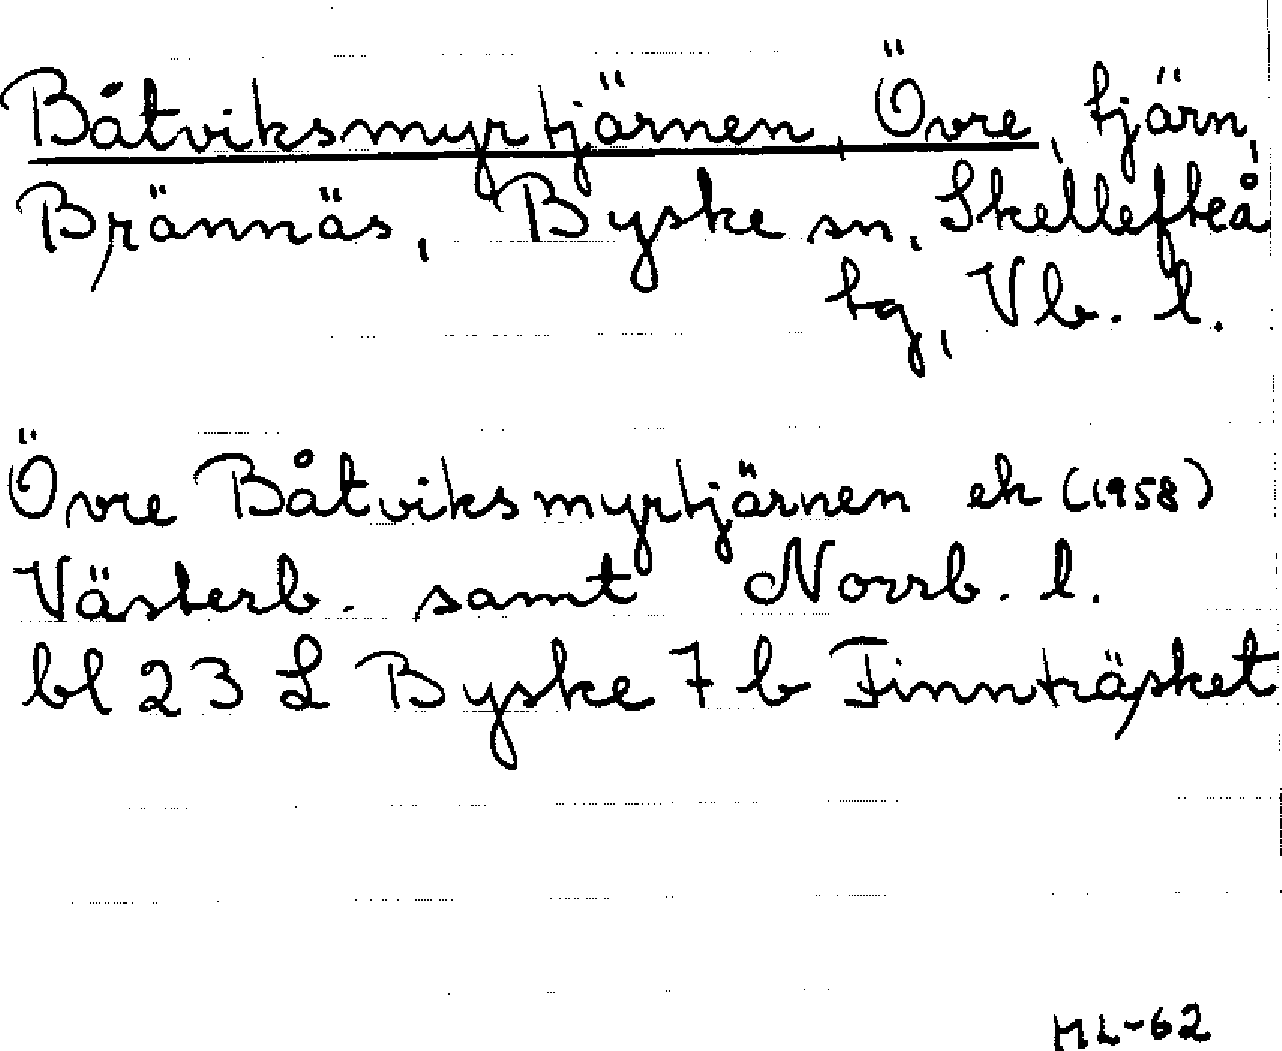 Båtviksmyrtjärnen, Övre, tjärn,
Brännäs, Byske sn, Skellefteå
tg, Vb. l.
Övre Båtviksmyrtjärnen ek (1958)
Västerb. samt Norrb. l.
bl 23 L Byske 7 b Finnträsket
ML-62